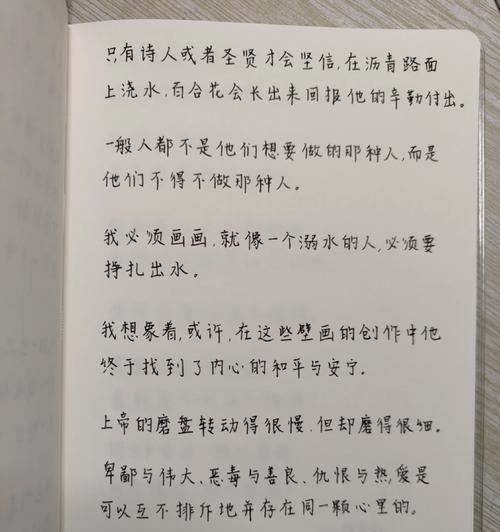 只有诗人或者圣贤才会坚信,在沥青路面
上浇水,百合花会长出来回报他的辛勤付出。
一般人都不是他们想要做的那种人,而是
他们不得不做那种人。
我必须画画,就像一个溺水的人,必须要
挣扎出水。
我想象着,或许,在这些壁画的创作中他
终于找到了内心的和平与安宁。
上帝的磨盘转动得很慢,但却磨得很细。
卑鄙与伟大、恶毒与善良、仇恨与热爱是
可以互不排斥地并存在同一颗心里的。